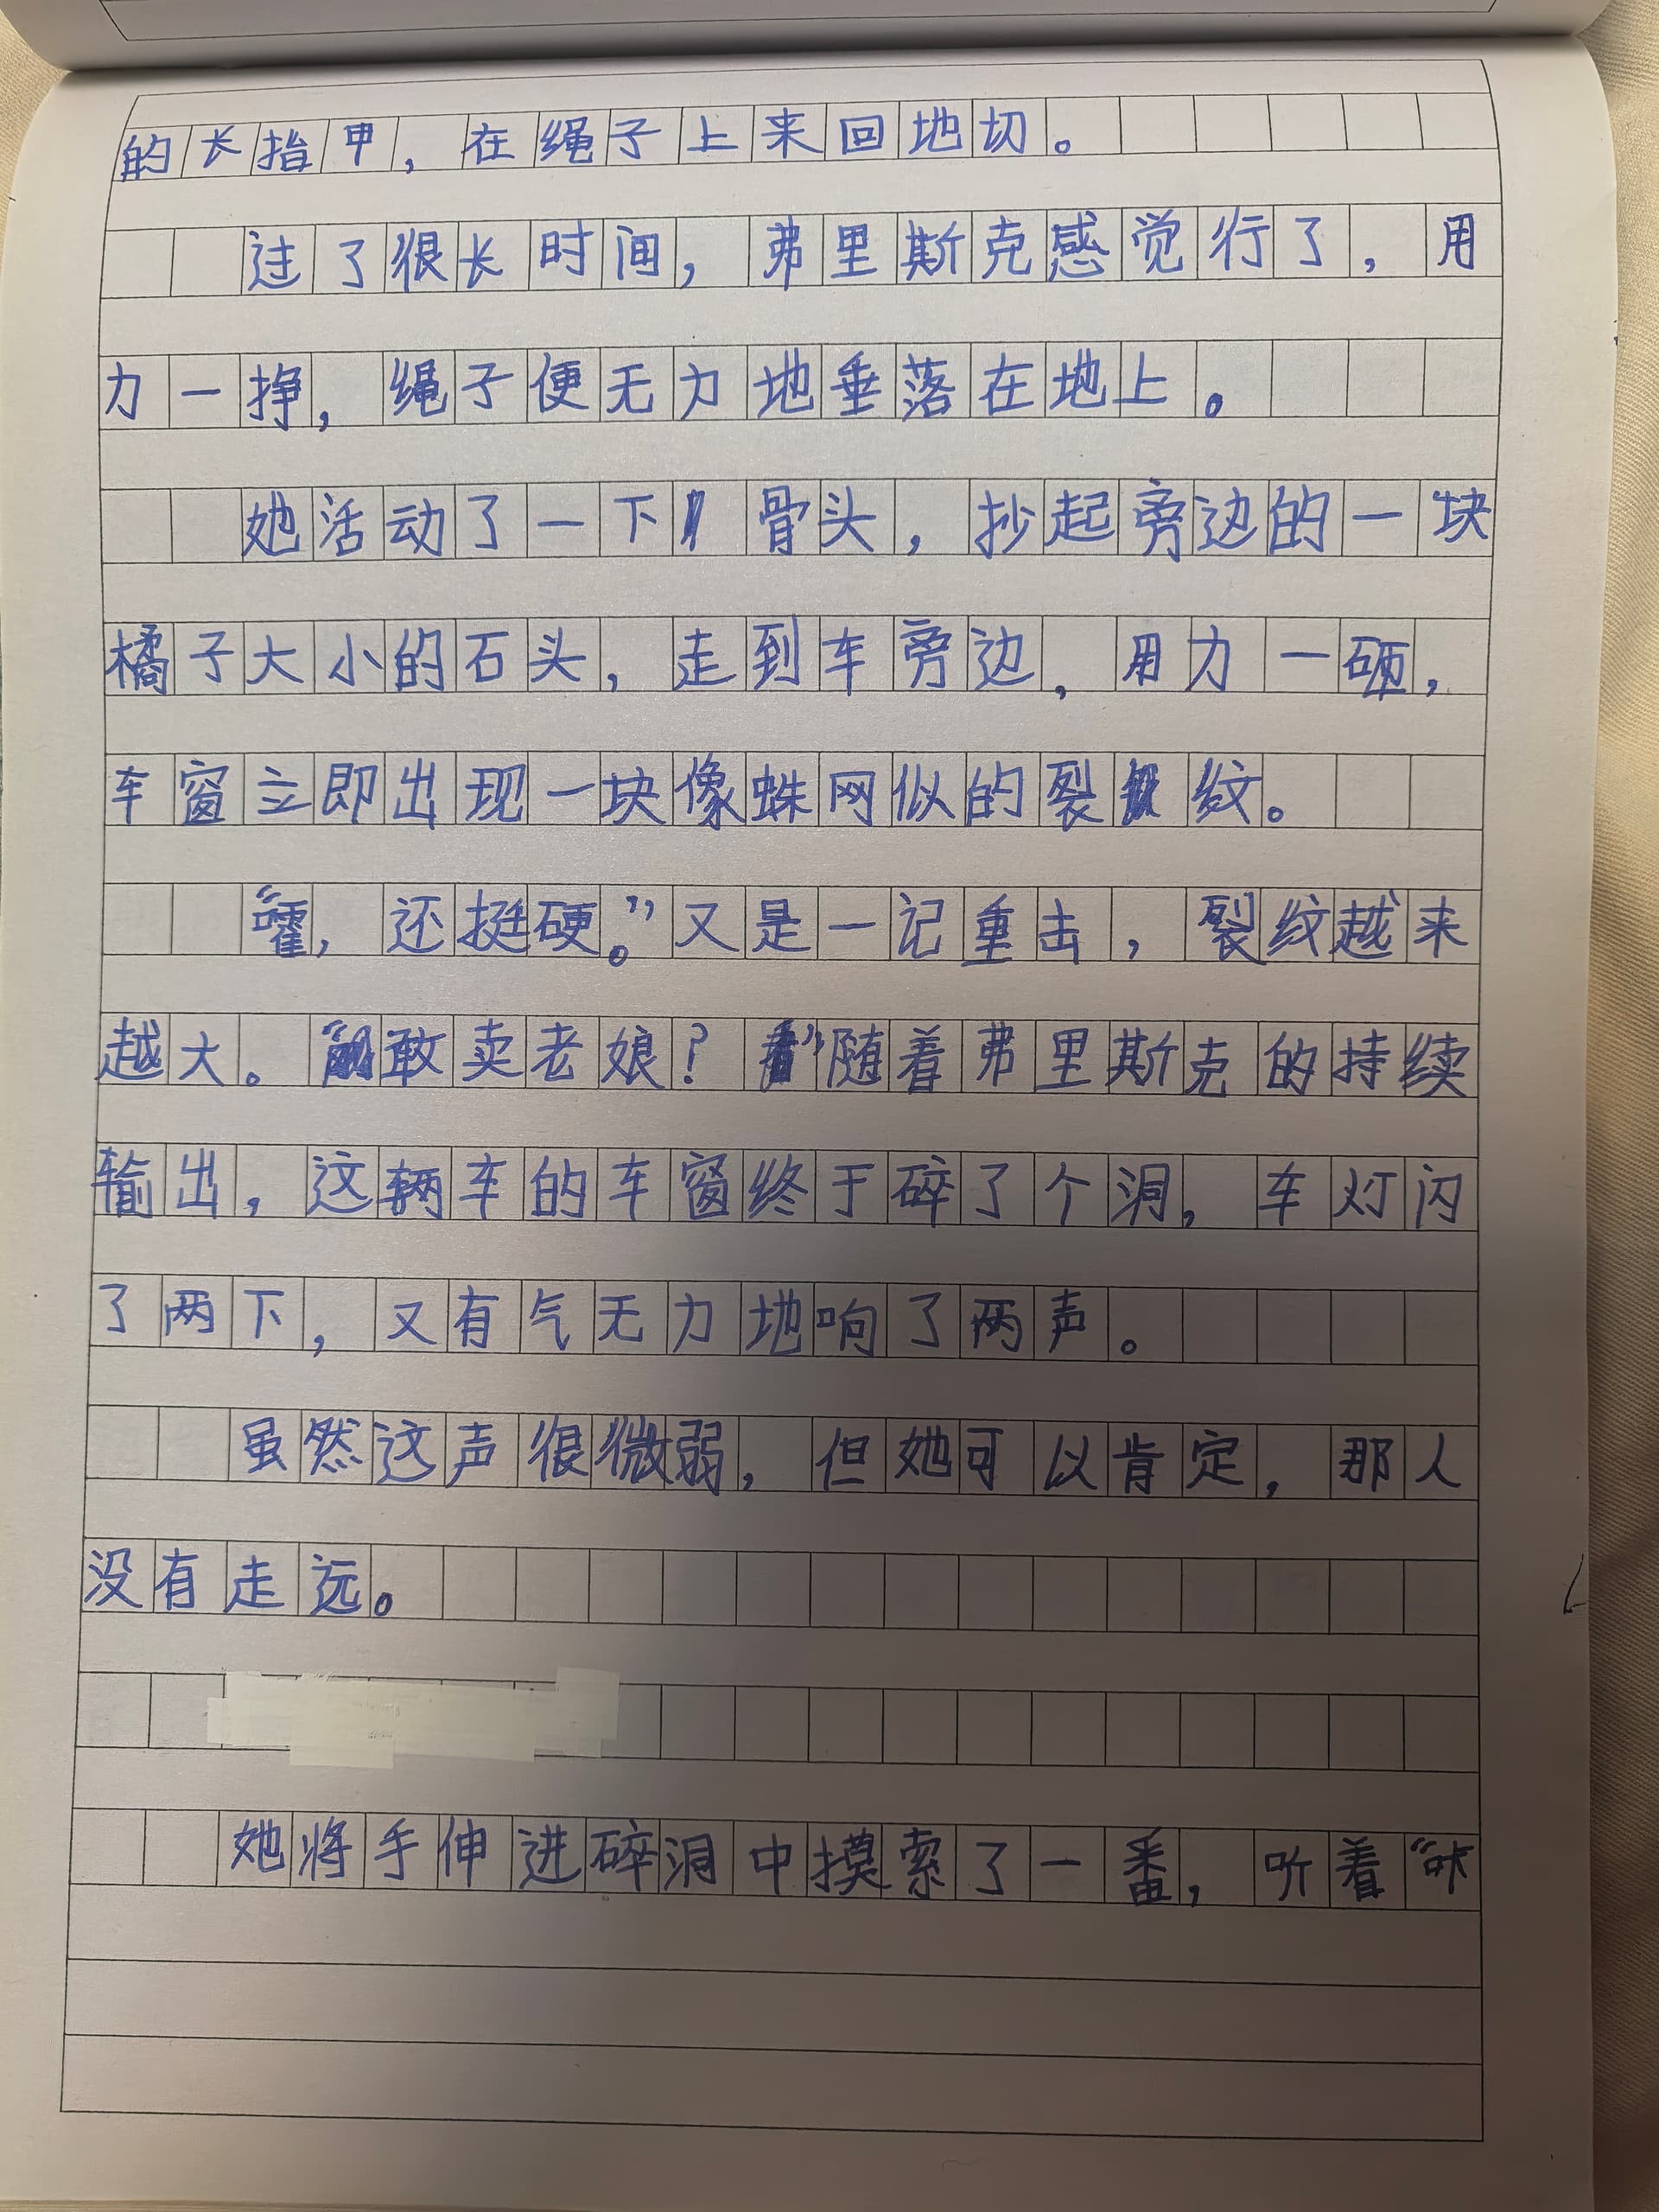 的长指甲，在绳子上来回地切。
过了很长时间，弗里斯克感觉行了，用
力一挣，绳子便无力地垂落在地上。
她活动了一下骨头，抄起旁边的一块
橘子大小的石头，走到车旁边，用力一砸，
车窗立即出现一块像蛛网似的裂纹。
“嚯，还挺硬。”又是一记重击，裂纹越来
越大。“敢卖老娘？”随着弗里斯克的持续
输出，这辆车的车窗终于碎了个洞，车灯闪
了两下，又有气无力地响了两声。
虽然这声很微弱，但她可以肯定，那人
没有走远。
她将手伸进碎洞中摸索了一番，听着“咔